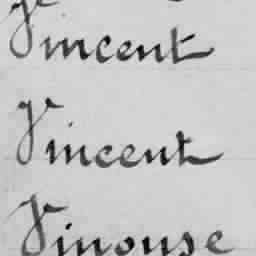 Vincent
Vincent
Vinouse